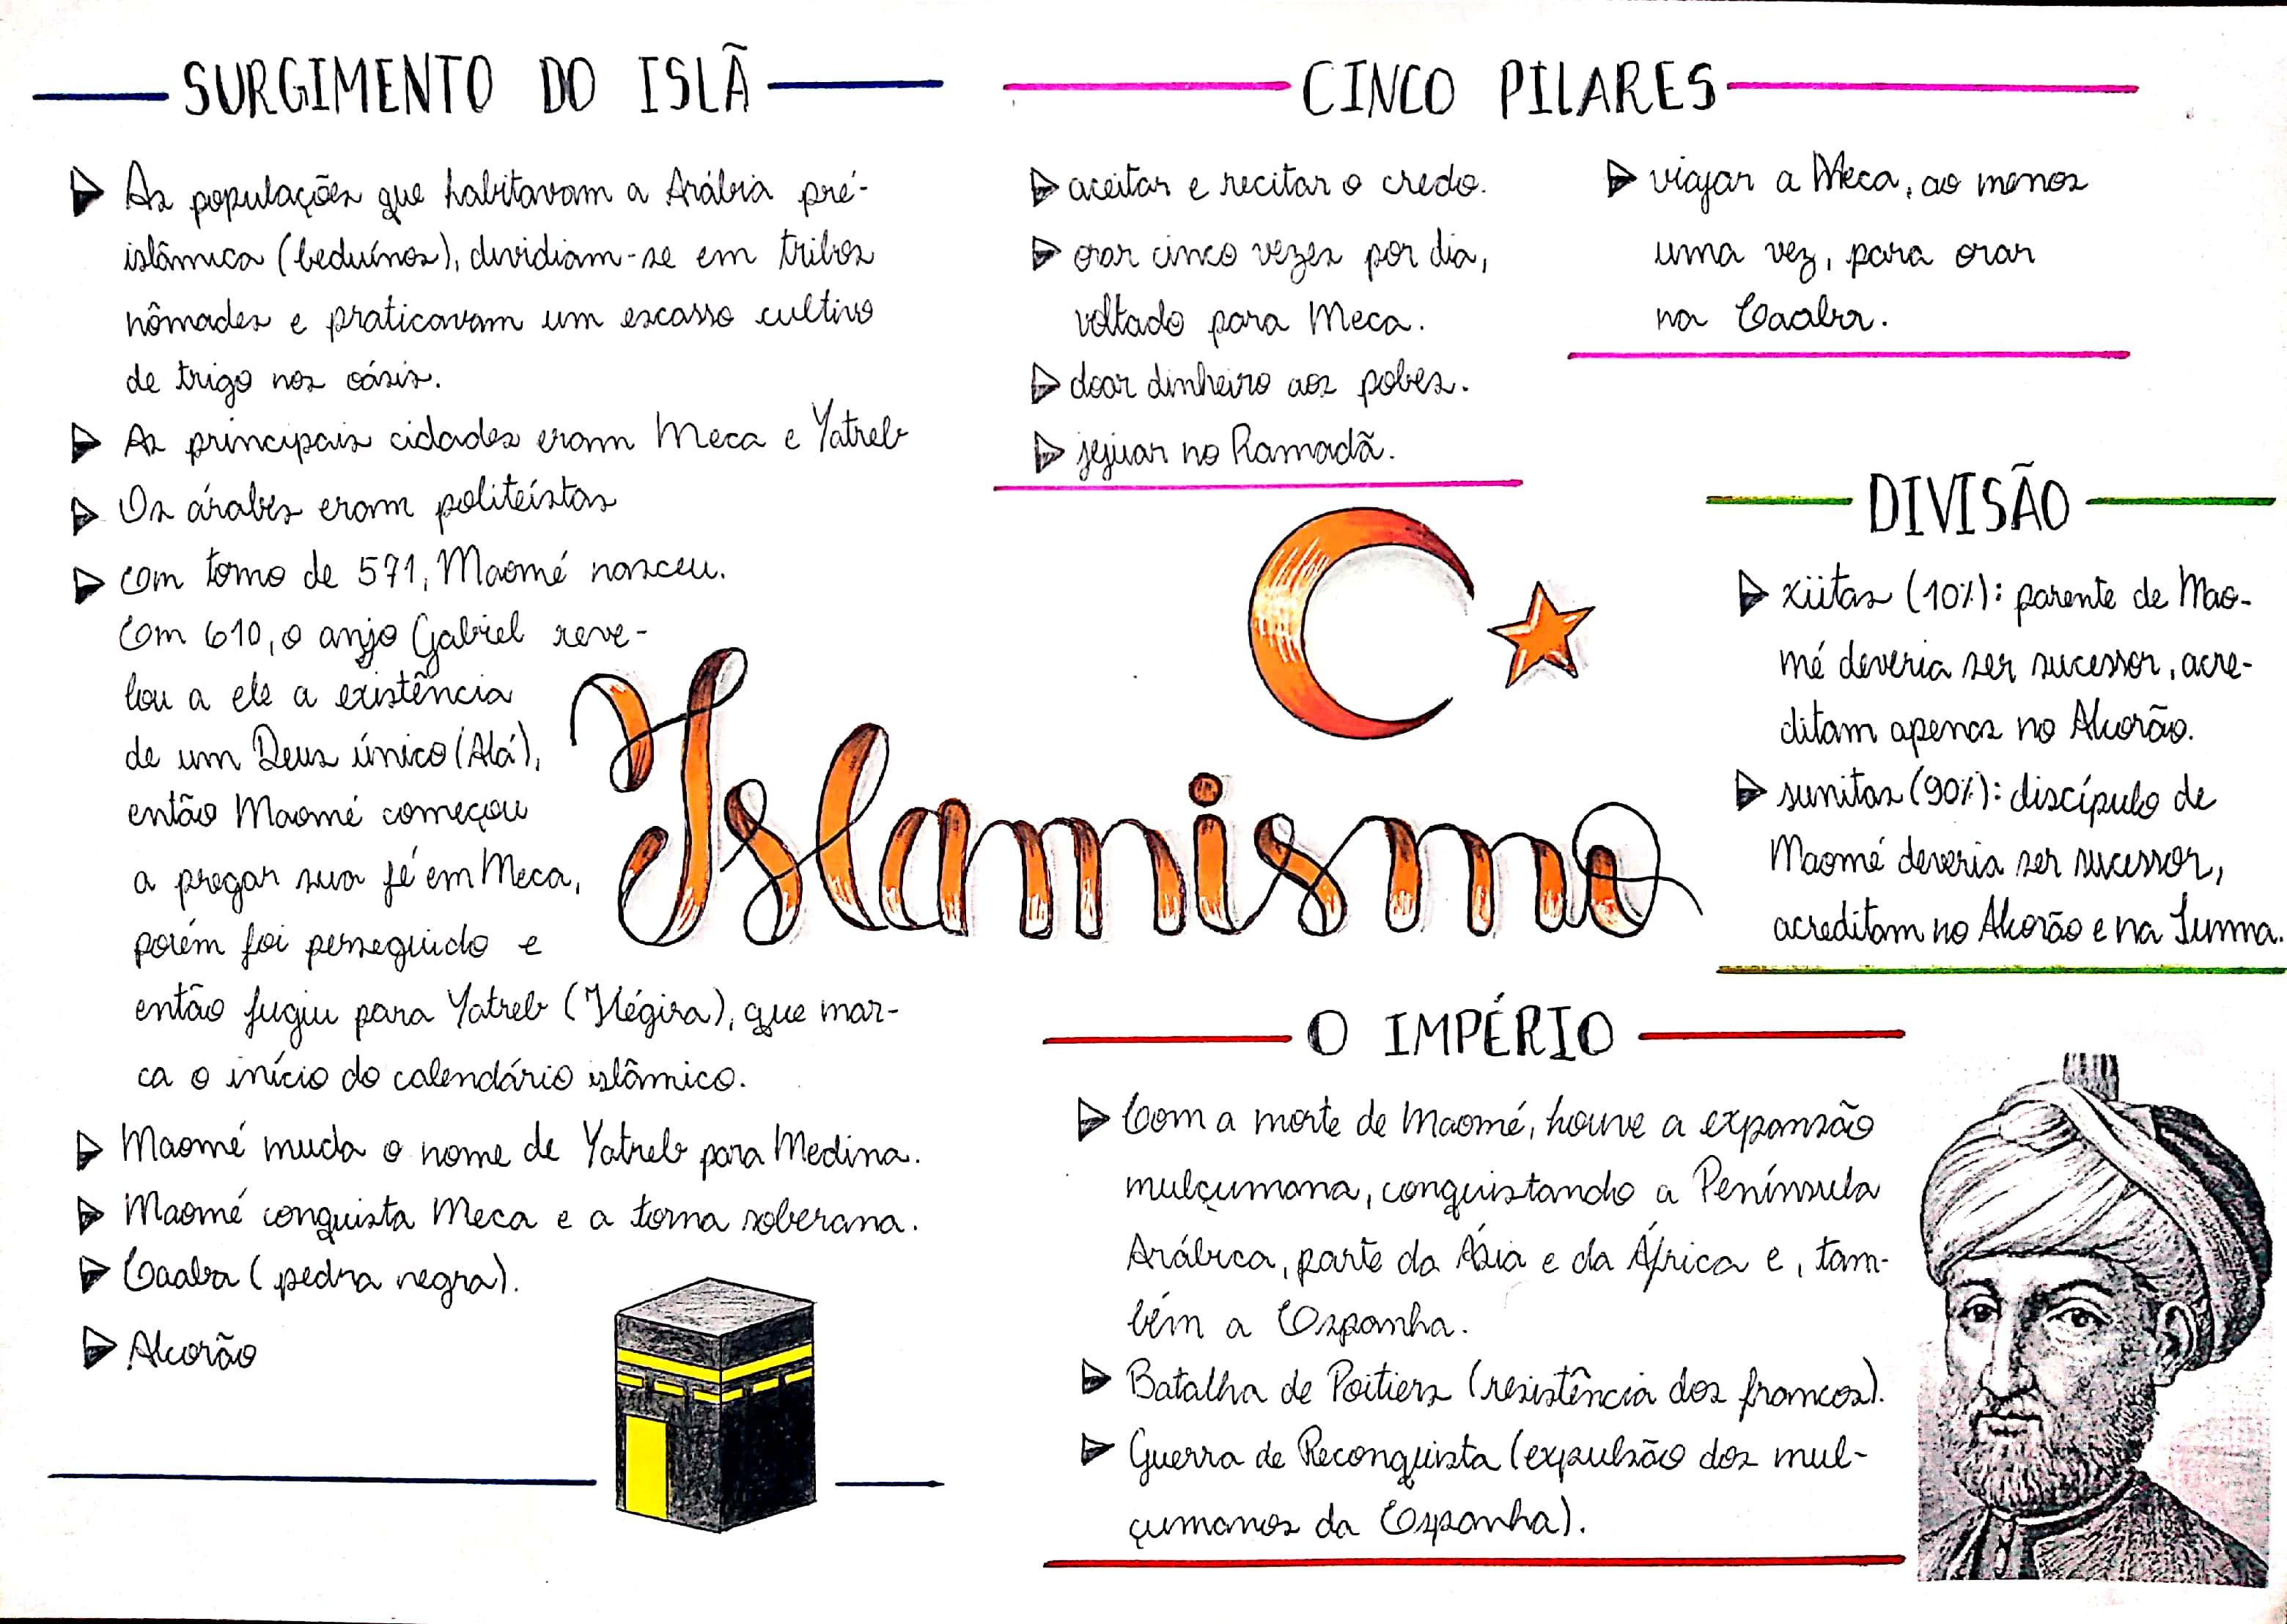 SURGIMENTO DO ISLÃ
As populações que habitavam a Arábia pré-
islâmica (beduínos), dividiam-se em tribos
nômades e praticavam um escasso cultivo
de trigo nos oásis.
As principais cidades eram Meca e Yatreb
Os árabes eram politeístas
Em torno de 571, Maomé nasceu.
Em 610, o anjo Gabriel reve-
lou a ele a existência
de um Deus único (Alá),
então Maomé começou
a pregar sua fé em Meca,
porém foi perseguido e
então fugiu para Yatreb (Hégira), que mar-
ca o início do calendário islâmico.
Maomé muda o nome de Yatreb para Medina.
Maomé conquista Meca e a torna soberana.
Caaba (pedra negra).
Alcorão
CINCO PILARES
aceitar e recitar o credo.
orar cinco vezes por dia,
voltado para Meca.
doar dinheiro aos pobes.
jejuar no Ramadã.
viajar a Meca, ao menos
uma vez, para orar
na Caaba.
Islamismo
DIVISÃO
xiitas (10%): parente de Mao-
mé deveria ser sucessor, acre-
ditam apenas no Alcorão.
sunitas (90%): discípulo de
Maomé deveria ser sucessor,
acreditam no Alcorão e na Sunna.
O IMPÉRIO
Com a morte de Maomé, houve a expansão
mulçumana, conquistando a Península
Arábica, parte da Ásia e da África e, tam-
bém a Espanha.
Batalha de Poitiers (resistência dos francos).
Guerra de Reconquista (expulsão dos mul-
çumanos da Espanha).